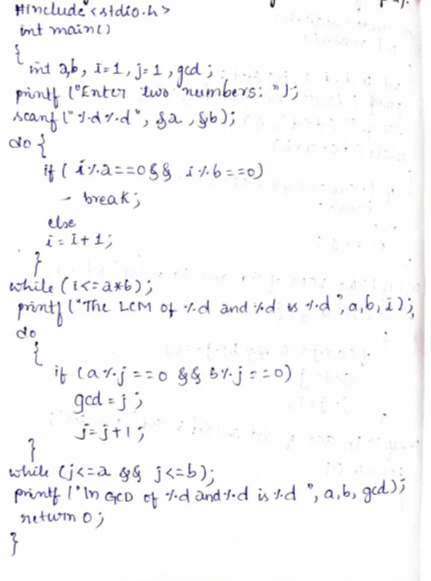 #include <stdio.h>
int main()
{
int a,b, i=1, j=1, gcd;
printf ("Enter two numbers: ");
scanf ("%d%d", &a, &b);
do {
if ( i%a==0 && i%b==0)
- break;
else
i = i+1;
}
while (i<=a*b);
printf ("The LCM of %d and %d is %d", a,b,i);
do
{
if (a%j==0 && b%j==0)
gcd=j;
j=j+1;
}
while (j<=a && j<=b);
printf ("\n GCD of %d and %d is %d ", a,b, gcd);
return 0;
}